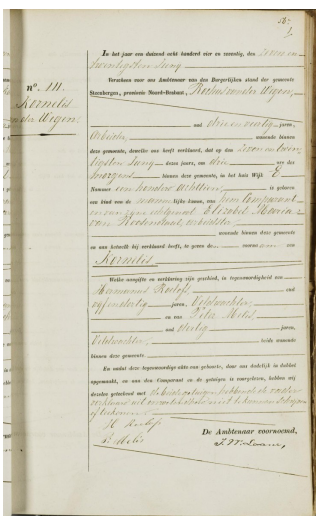 In het jaar een duizend acht honderd vier en zeventig, den zeven en
twintigsten Juny
Verscheen voor ons Ambtenaar van den Burgerlijken stand der gemeente
Steenbergen, provincie Noord-Braband,
oud drie en veertig jaren,
Arbeider, wonende binnen
deze gemeente, dewelke ons heeft verklaard, dat op den zeven en twin
tigsten Juny dezes jaars, om drie ure des
morgens binnen deze gemeente, in het huis Wijk E
Nummer een honderd is geboren
een kind van de mannelijke kunne, van hem Comparant
en van zijne echtgenoot Elizabet
arbeidster
wonende binnen deze gemeente
en aan hetwelk hij verklaard heeft, te geven de voornaam van
Kornelis
Welke aangifte en verklaring zijn geschied, in tegenwoordigheid van
Hermanus Roelofs oud
vyfendertig jaren, Veldwachter
en van Peter Melis
oud dertig jaren,
Veldwachter, beide wonende
binnen deze gemeente
En omdat deze tegenwoordige akte van geboorte, door ons dadelijk in dubbel
opgemaakt, en aan den Comparant en de getuigen is voorgelezen, hebben wij
dezelve geteekend met de beide getuigen hebbende de vader
verklaard niet te kunnen schryven
of teekenen
H Roelofs
P. Melis
De Ambtenaar voornoemd,
n°. 111.
Kornelis
van der Wegen